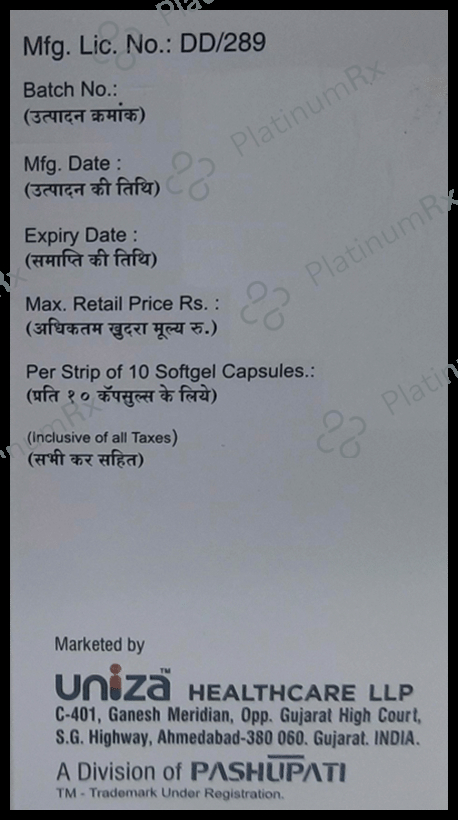 Mfg. Lic. No.: DD/289
Batch No.:
(उत्पादन क्रमांक)
Mfg. Date :
(उत्पादन की तिथि)
Expiry Date :
(समाप्ति की तिथि)
Max. Retail Price Rs. :
(अधिकतम खुदरा मूल्य रु.)
Per Strip of 10 Softgel Capsules.:
(प्रति १० कॅपसुल्स के लिये)
(Inclusive of all Taxes)
(सभी कर सहित)
Marketed by
unizaTM HEALTHCARE LLP
C-401, Ganesh Meridian, Opp. Gujarat High Court,
S.G. Highway, Ahmedabad-380 060. Gujarat. INDIA.
A Division of PASHUPATI
TM - Trademark Under Registration.
PlatinumRx
PlatinumRx
PlatinumRx